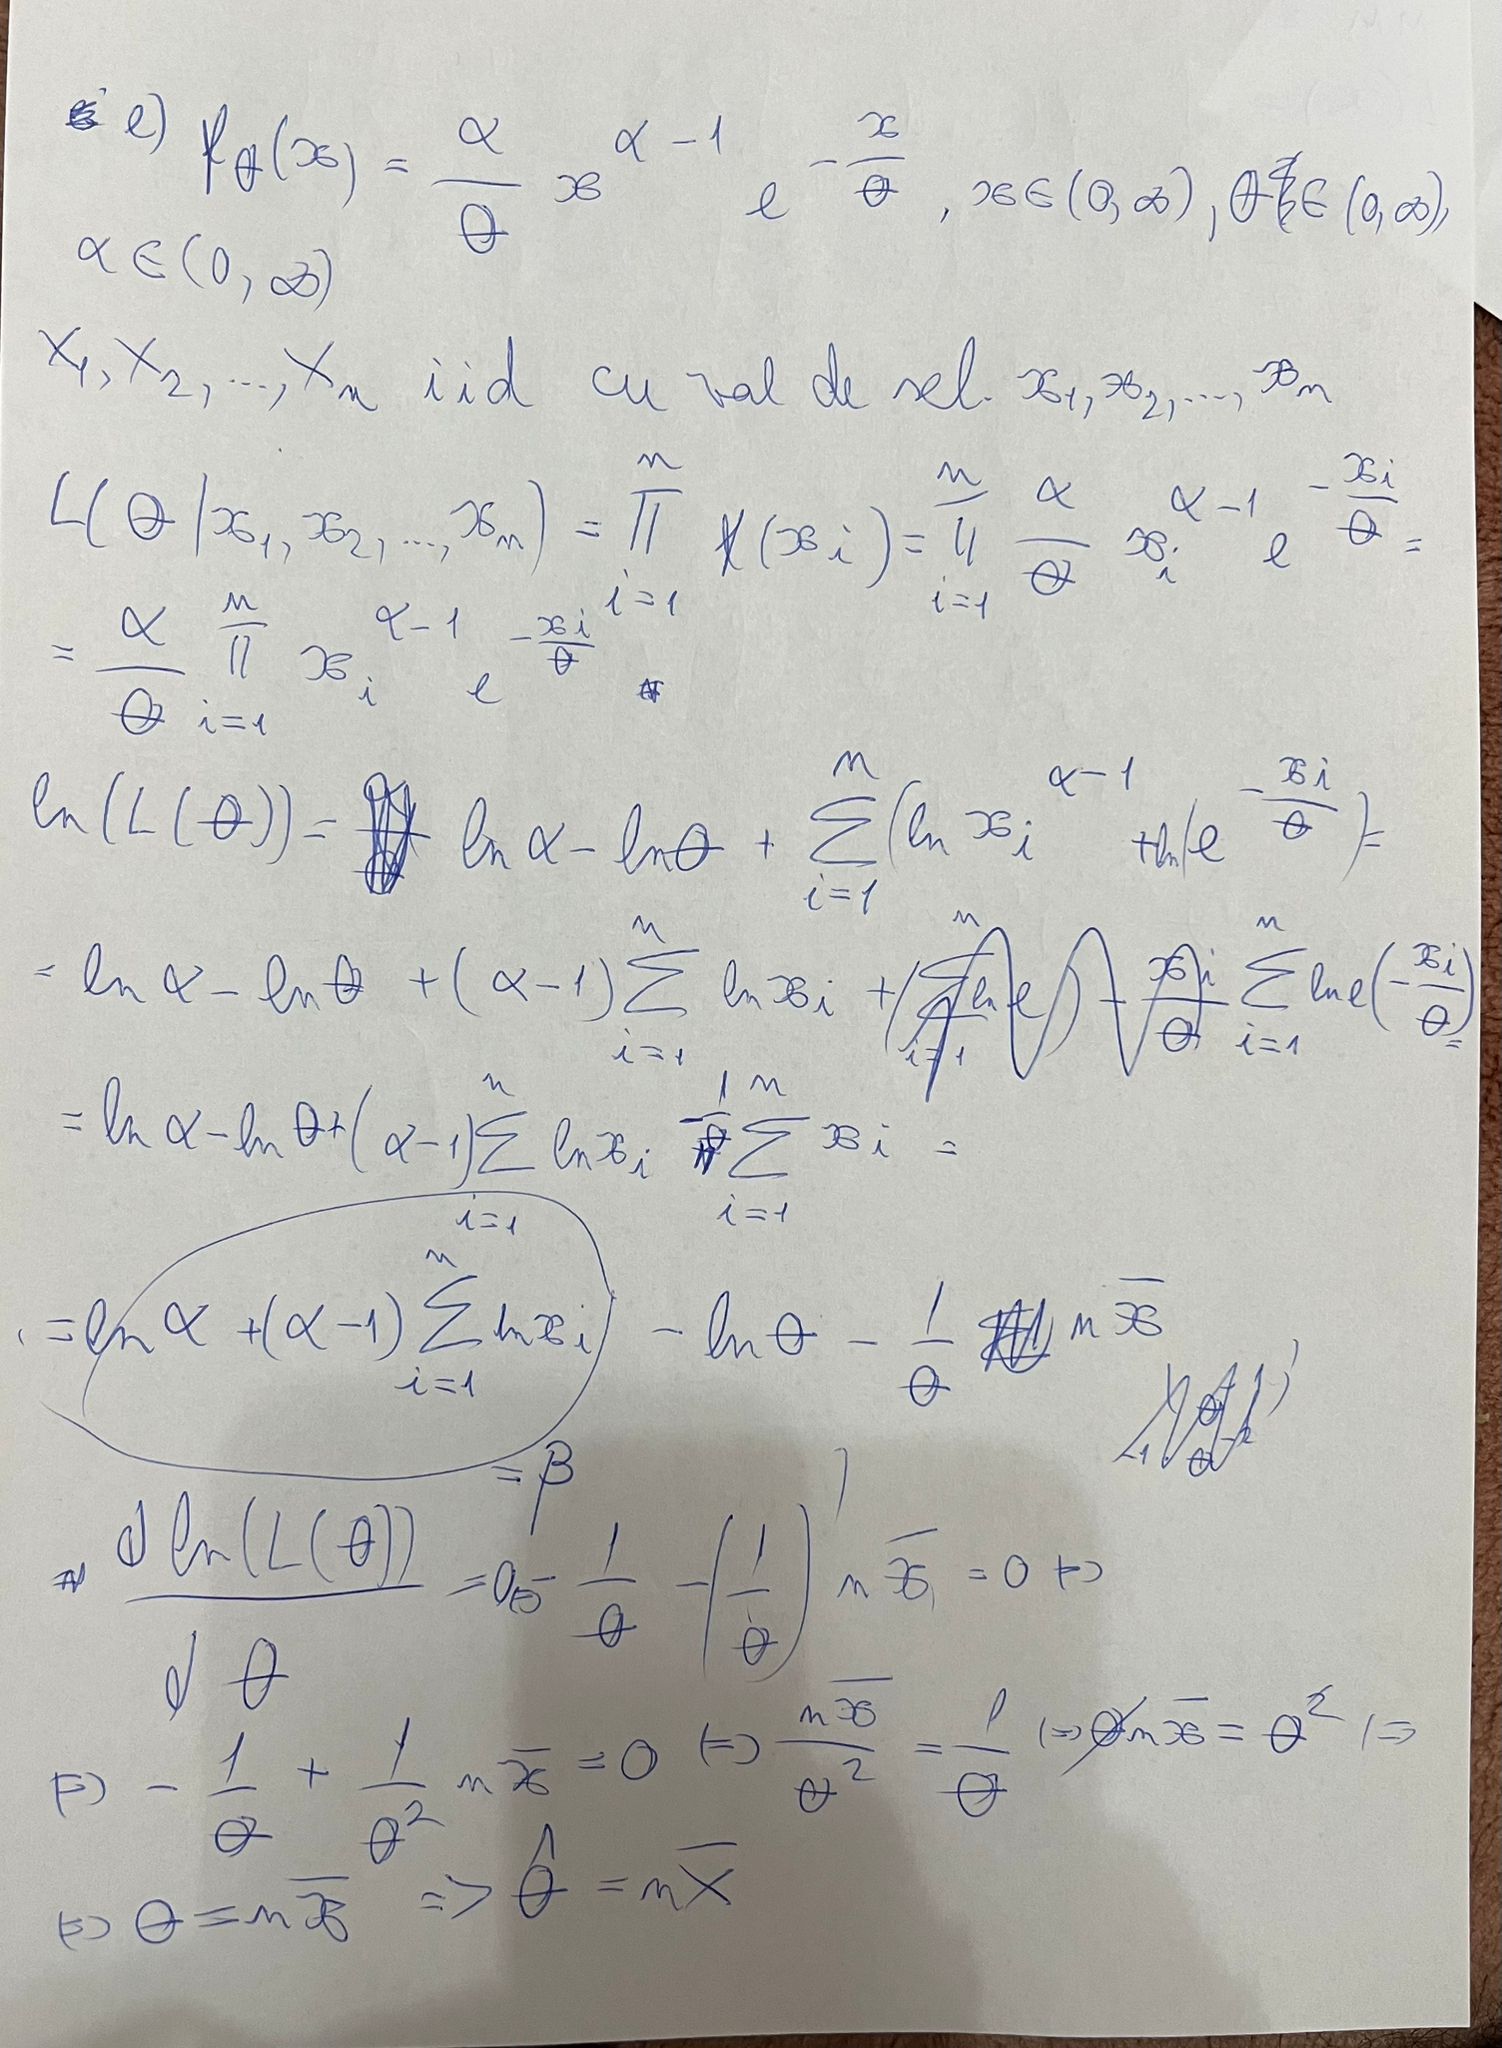 e) f_θ(x) = α/θ x^(α-1) e^(-x/θ), x∈(0,∞), θ∈(0,∞),
α∈(0,∞)
X₁, X₂, ..., Xₙ iid cu val de sel. x₁, x₂, ..., xₙ
L(θ|x₁, x₂, ..., xₙ) = ∏_{i=1}^{n} f(xᵢ) = ∏_{i=1}^{n} α/θ xᵢ^(α-1) e^(-xᵢ/θ) =
= α/θ ∏_{i=1}^{n} xᵢ^(α-1) e^(-xᵢ/θ)
ln(L(θ)) = ln α - ln θ + ∑_{i=1}^{n} (ln xᵢ^(α-1) + ln e^(-xᵢ/θ)) =
= ln α - ln θ + (α-1) ∑_{i=1}^{n} ln xᵢ + ∑_{i=1}^{n} ln e (-xᵢ/θ) =
= ln α - ln θ + (α-1) ∑_{i=1}^{n} ln xᵢ - 1/θ ∑_{i=1}^{n} xᵢ =
= ln α + (α-1) ∑_{i=1}^{n} ln xᵢ - ln θ - 1/θ n x̄
= β
d ln(L(θ))/dθ = 0 - 1/θ - (1/θ)' n x̄ = 0 ⇔
⇔ - 1/θ + 1/θ² n x̄ = 0 ⇔ n x̄/θ² = 1/θ ⇔ θ n x̄ = θ² ⇔
⇔ θ = n x̄ => θ̂ = n X̄